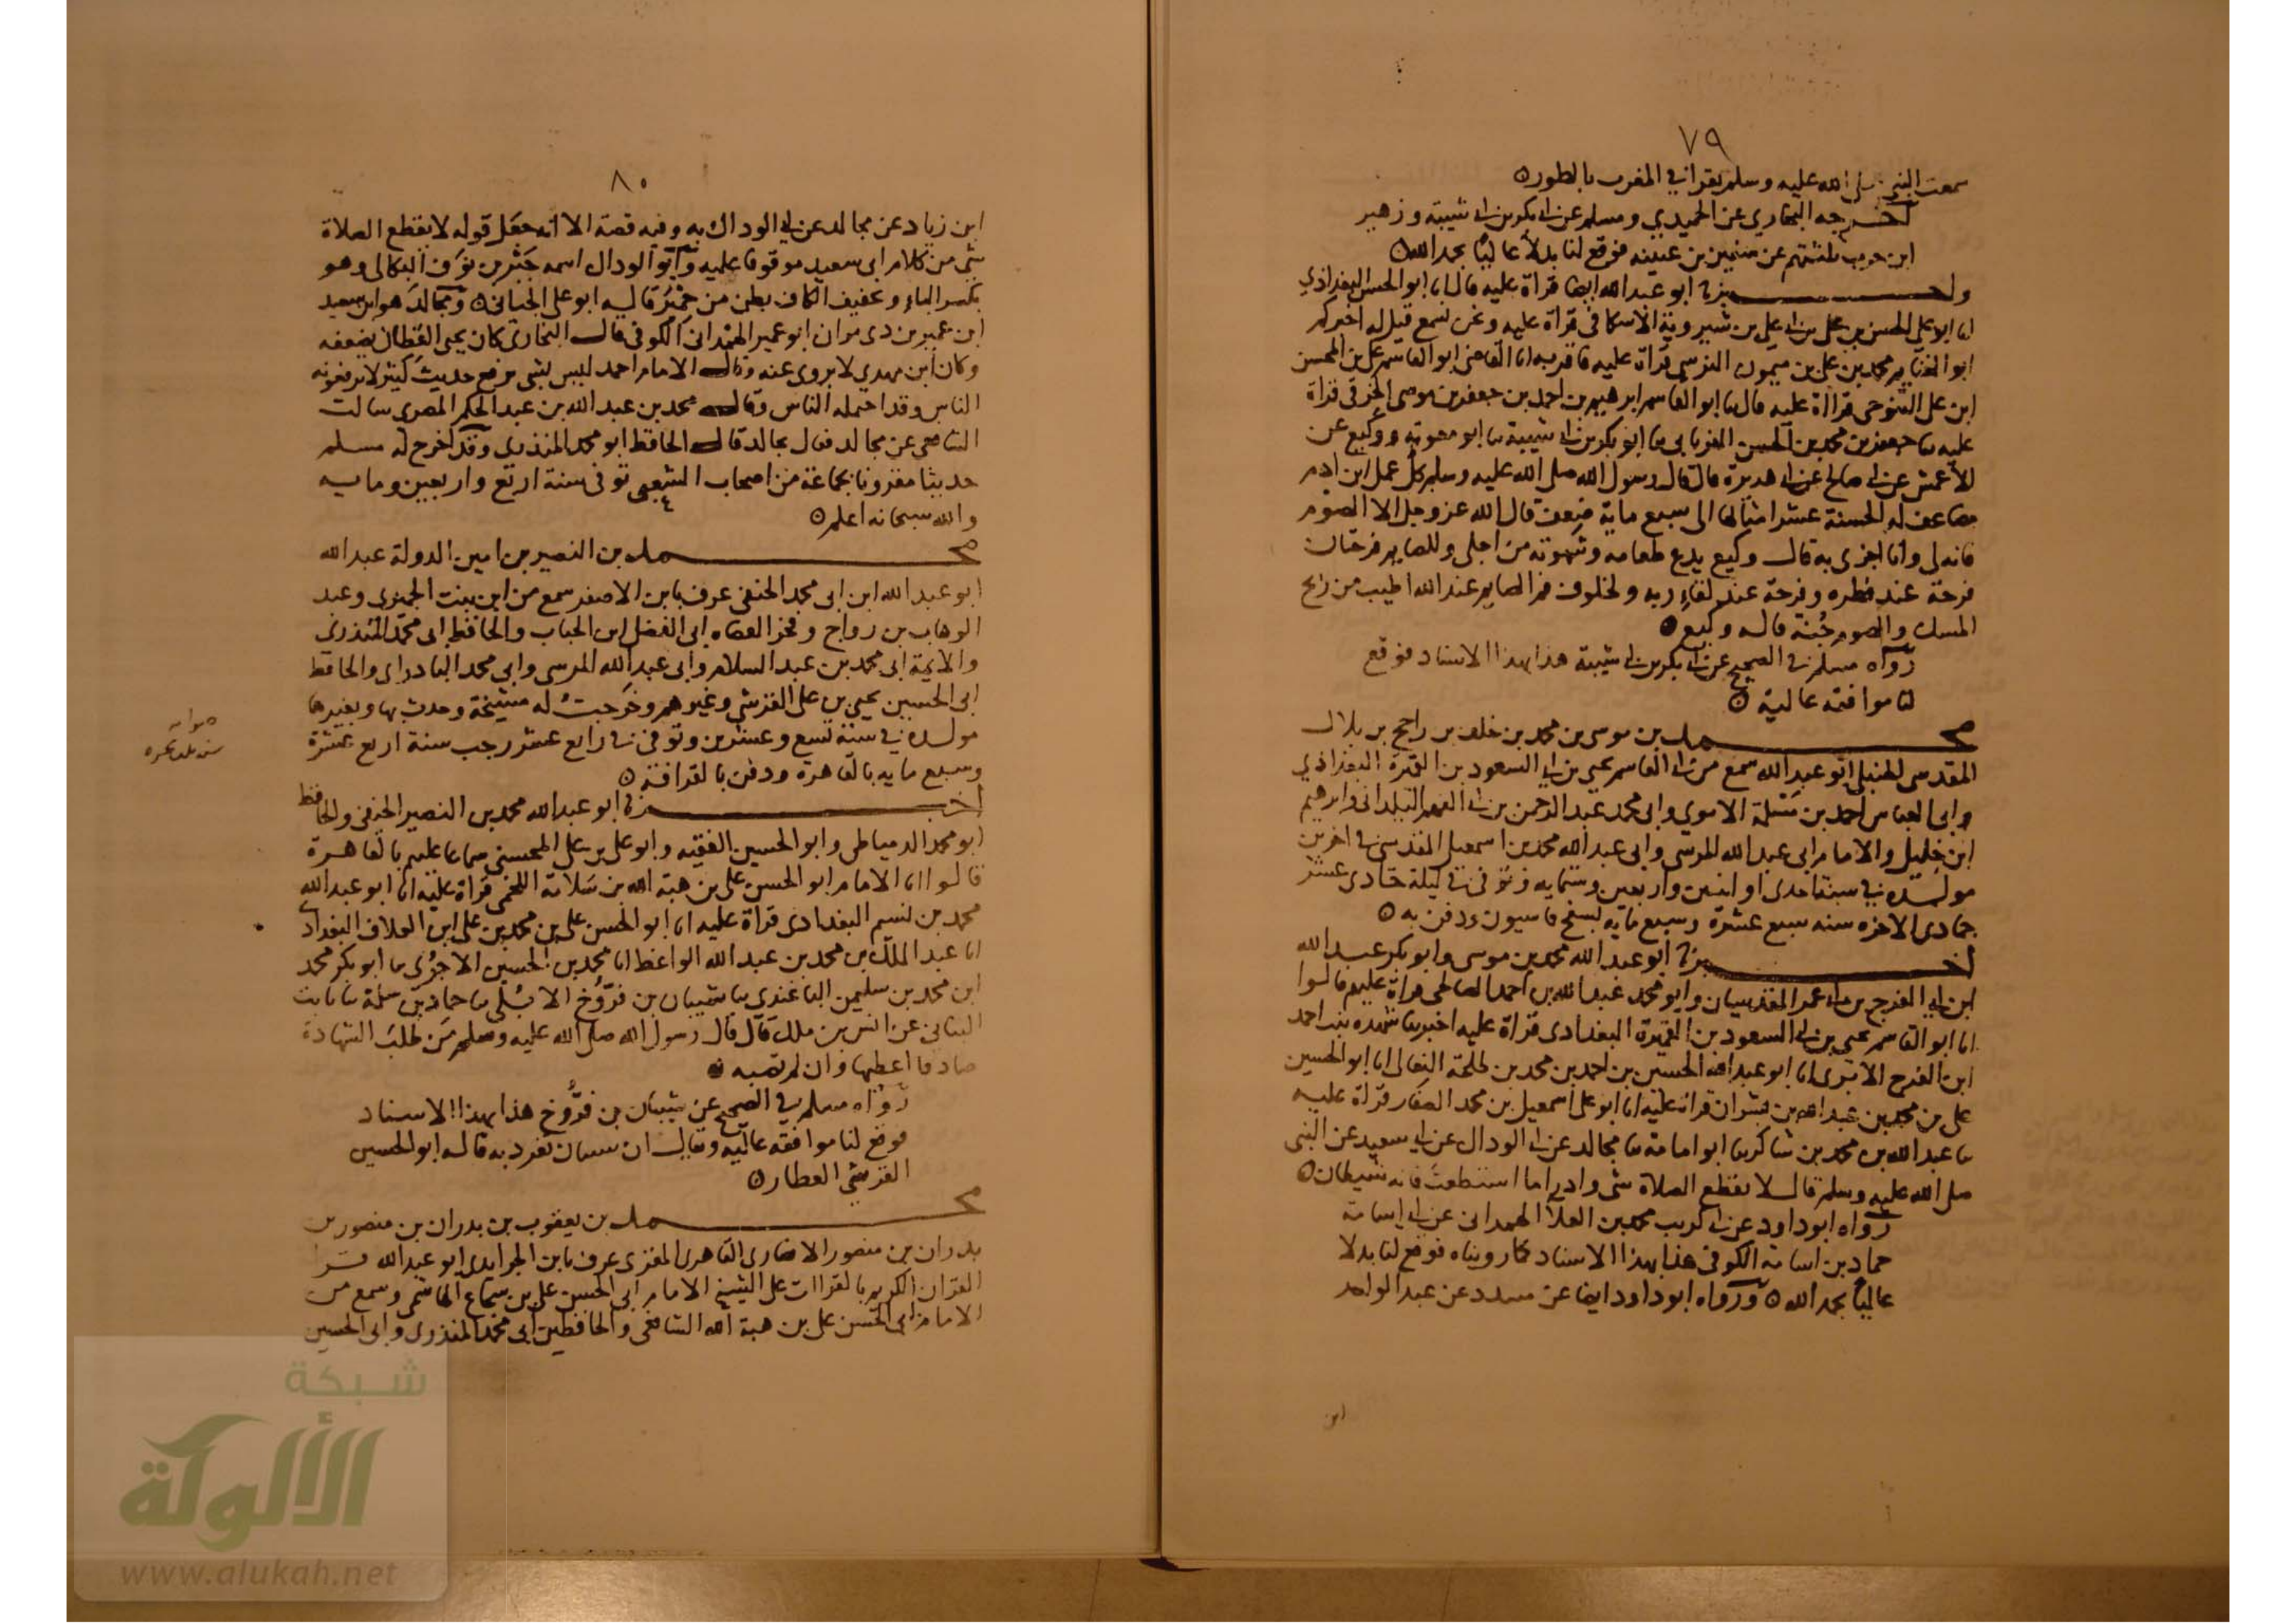 ٧٩
سمعت النبي صلى الله عليه وسلم يقرا في المغرب بالطور ه
اخرجه البخاري عن الحميدي ومسلم عن ابي بكر بن ابي شيبة وزهير
ابن حرب ثلثتهم عن سفين بن عيينه فوقع لنا بدلا عاليا بحمد الله ه
واخبرنا ابو عبد الله ايضا قراة عليه قال انا ابو الحسن البغداذي
انا ابو علي الحسن بن علي بن ابي علي بن شيرويه الاسكافي قراة عليه ونحن نسمع قيل له اخبركم
ابو الغنايم محمد بن علي بن ميمون النرسي قراة عليه فاقر به انا القاضي ابو القاسم علي بن المحسن
ابن علي التنوخي قراة عليه قال نا ابو القاسم ابرهيم بن احمد بن جعفر بن موسى الخرقي قراة
عليه نا جعفر بن محمد بن الحسن الفريابي نا ابو بكر بن ابي شيبة نا ابو معوية ووكيع عن
الاعمش عن ابي صالح عن ابي هريرة قال قال رسول الله صلى الله عليه وسلم كل عمل ابن ادم
يضاعف له الحسنة عشر امثالها الى سبع ماية ضعف قال الله عز وجل الا الصوم
فانه لي وانا اجزي به قال وكيع يدع طعامه وشهوته من اجلي وللصايم فرحتان
فرحة عند فطره وفرحة عند لقاء ربه ولخلوف فم الصايم عند الله اطيب من رايح
المسك والصوم جُنة قاله وكيع ه
رواه مسلم في الصحيح عن ابي بكر بن ابي شيبة هذا بهذا الاسناد فوقع
لنا موافقة عالية ه
محمد بن موسى بن محمد بن خلف بن راجح بن بلال
المقدسي الحنبلي ابو عبد الله سمع من ابي القاسم يحيى بن ابي السعود بن القميرة البغداذي
وابي العباس احمد بن مسلمة الاموي وابي محمد عبد الرحمن بن ابي الفهم البلداني وابرهيم
ابن خليل والامام ابي عبد الله المرسي وابي عبد الله محمد بن اسمعيل المقدسي في اخرين
مولده في سنة احدى او اثنين واربعين وستمايه وتوفي في ليلة حادي عشر
جمادى الاخره سنه سبع عشرة وسبع مايه بسفح قاسيون ودفن به ه
اخبرنا ابو عبد الله محمد بن موسى وابو بكر عبد الله
ابن ابي الفرج بن ابي عمر المقدسيان وابو محمد عبد الله بن احمد الصالحي قراة عليهم قالوا
انا ابو القاسم يحيى بن ابي السعود بن القميرة البغدادي قراة عليه اخبرتنا شهده بنت احمد
ابن الفرج الابري انا ابو عبد الله الحسين بن احمد بن محمد بن طلحة النعالي انا ابو الحسين
علي بن محمد بن عبد الله بن بشران قراة عليه انا ابو علي اسمعيل بن محمد الصفار قراة عليه
نا عبد الله بن محمد بن شاكر نا ابو اسامة نا مجالد عن ابي الوداك عن ابي سعيد عن النبي
صلى الله عليه وسلم قال لا يقطع الصلاة شي وادرا ما استطعت فانه شيطان ه
رواه ابو داود عن ابي كريب محمد بن العلا الهمداني عن ابي اسامة
حماد بن اسامة الكوفي هذا بهذا الاسناد كما رويناه فوقع لنا بدلا
عاليا بحمد الله ه ورواه ابو داود ايضا عن مسدد عن عبد الواحد
ابن
٨٠
ابن زياد عن مجالد عن ابي الوداك به وفيه قصة الا انه جعل قوله لا يقطع الصلاة
شي من كلام ابي سعيد موقوفا عليه وابو الوداك اسمه جبر بن نوف البكالي وهو
بكسر الباء وتخفيف الكاف بطن من حمير قاله ابو علي الجياني ه ومجالد هو ابن سعيد
ابن عمير بن ذي مران ابو عمير الهمداني الكوفي قال البخاري كان يحيى القطان يضعفه
وكان ابن مهدي لا يروي عنه وقال الامام احمد ليس بشي يرفع حديث كثير لا يرفعونه
الناس وقد احتمله الناس وقال محمد بن عبد الله بن عبد الحكم المصري سالت
الشافعي عن مجالد فقال يجالد قال الحافظ ابو محمد المنذري وقد اخرج له مسلم
حديثا مقرونا بجماعة من اصحاب الشعبي توفي سنة اربع واربعين ومايه
والله سبحانه اعلم ه
محمد بن النصير بن امين الدولة عبد الله
ابو عبد الله ابن ابي محمد الحنفي عرف بابن الاصفر سمع من ابن بنت الجميزي وعبد
الوهاب بن رواج وفخر القضاه ابي الفضل ابن الحباب والحافظ ابي محمد المنذري
والايمة ابي محمد بن عبد السلام وابي عبد الله المرسي وابي محمد البادراي والحافظ
ابي الحسين يحيى بن علي القرشي وغيرهم وخرجت له مشيخة وحدث بها وبغيرها
مولده في سنة تسع وعشرين وتوفي في رابع عشر رجب سنة اربع عشرة
وسبع مايه بالقاهرة ودفن بالقرافة ه
صوابه
اخبرنا ابو عبد الله محمد بن النصير الحنفي والحافظ
ابو محمد الدمياطي وابو الحسين الفقيه وابو علي بن علي المحسني سماعا عليهم بالقاهرة
قالوا انا الامام ابو الحسن علي بن هبة الله بن سلامة اللخمي قراة عليه انا ابو عبد الله
محمد بن نسيم البغدادي قراة عليه انا ابو الحسن علي بن محمد بن علي ابن العلاف البغدادي
انا عبد الملك بن محمد بن عبد الله الواعظ انا محمد بن الحسين الاجري نا ابو بكر محمد
ابن محمد بن سليمن الباغندي نا شيبان بن فروخ الابلي نا حماد بن سلمة نا ثابت
البناني عن انس بن ملك قال قال رسول الله صلى الله عليه وسلم من طلب الشهادة
صادقا اعطيها وان لم تصبه ه
رواه مسلم في الصحيح عن شيبان بن فروخ هذا بهذا الاسناد
فوقع لنا موافقه عالية ويقال ان شيبان تفرد به قاله ابو الحسين
القرشي العطار ه
محمد بن يعقوب بن بدران بن منصور بن
بدران بن منصور الانصاري القاهري المقري عرف بابن الجرايدي ابو عبد الله قرا
القران الكريم بالقراات على الشيخ الامام ابي الحسن علي بن شجاع الهاشمي وسمع من
الامام ابي الحسن علي بن هبة الله الشافعي والحافظين ابي محمد المنذري وابي الحسين
شبكة
الألوكة
www.alukah.net